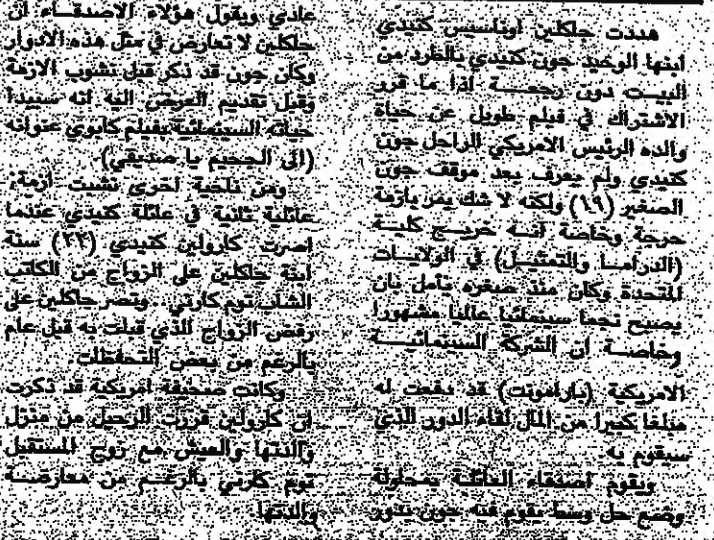 هددت جاكلين اوناسيس كنيدي
ابنها الوحيد جون كنيدي بالطرد من
البيت دون رجعة اذا ما قرر
الاشتراك في فيلم طويل عن حياة
والده الرئيس الامريكي الراحل جون
كنيدي ولم يعرف بعد موقف جون
الصغير (١٩) ولكنه لا شك يمر بازمة
حرجة وخاصة انه خريج كلية
(الدراما والتمثيل) في الولايات
المتحدة وكان منذ صغره يأمل بان
يصبح نجما سينمائيا عالميا مشهورا
وخاصة ان الشركة السينمائية
الامريكية (بارامونت) قد دفعت له
مبلغا كبيرا من المال لقاء الدور الذي
سيقوم به
ويقوم اصدقاء العائلة بمحاولة
وضع حل وسط يقوم فيه جون بدور
عادي ويقول هؤلاء الاصدقاء ان
جاكلين لا تعارض في مثل هذه الادوار
وكان جون قد ذكر قبل نشوب الازمة
وقبل تقديم العرض اليه انه سيبدا
حياته السينمائية بفيلم كابوي عنوانه
(الى الجحيم يا صديقي)
ومن ناحية اخرى نشبت ازمة
عائلية ثانية في عائلة كنيدي عندما
اصرت كارولين كنيدي (٢٢) سنة
ابنة جاكلين على الزواج من الكاتب
الشاب توم كارتي .. وتصر جاكلين على
رفض الزواج الذي قبلت به قبل عام
بالرغم من بعض التحفظات
وكانت صحيفة امريكية قد ذكرت
ان كارولين قررت الرحيل من منزل
والدتها والعيش مع زوج المستقبل
توم كارتي بالرغم من معارضة
والدتها